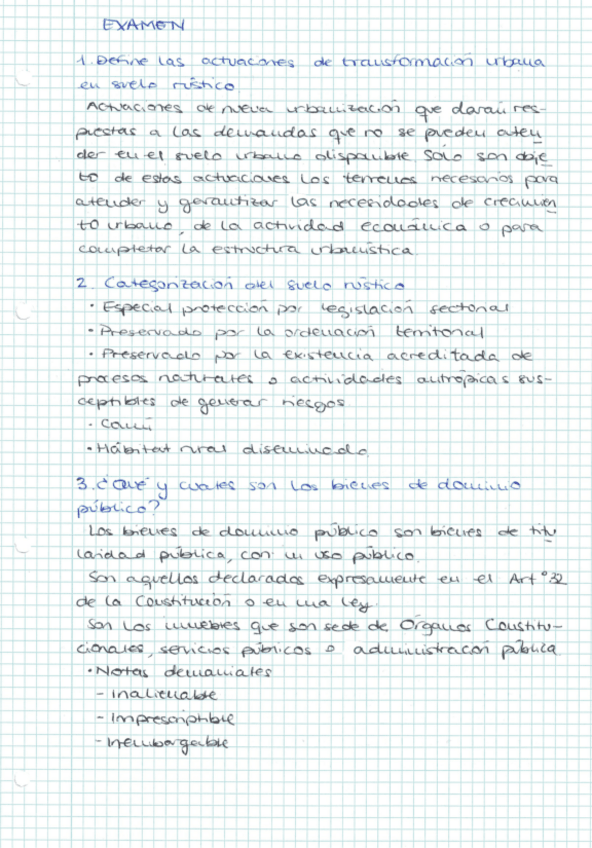 EXAMEN
1. Define las actuaciones de transformación urbana
en suelo rústico.
Actuaciones de nueva urbanización que darán res-
puestas a las demandas que no se pueden aten
der en el suelo urbano disponible. Solo son obje
to de estas actuaciones los terrenos necesarios para
atender y garantizar las necesidades de crecimien
to urbano, de la actividad económica o para
completar la estructura urbanística.
2. Categorización del suelo rústico
• Especial protección por legislación sectorial
• Preservado por la ordenación territorial
• Preservado por la existencia acreditada de
procesos naturales o actividades autrópicas sus-
ceptibles de generar riesgos
• Común
• Hábitat rural diseminado
3. ¿Qué y cuales son los bienes de dominio
público?
Los bienes de dominio público son bienes de titu
laridad pública, con un uso público.
Son aquellos declarados expresamente en el Artº32
de la Constitución o en una ley.
Son los inmuebles que son sede de Órganos Constitu-
cionales, servicios públicos o administración pública
• Notas demaniales
- Inalienable
- Imprescriptible
- Inembargable